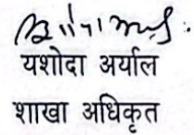 यशोदा अर्याल
शाखा अधिकृत